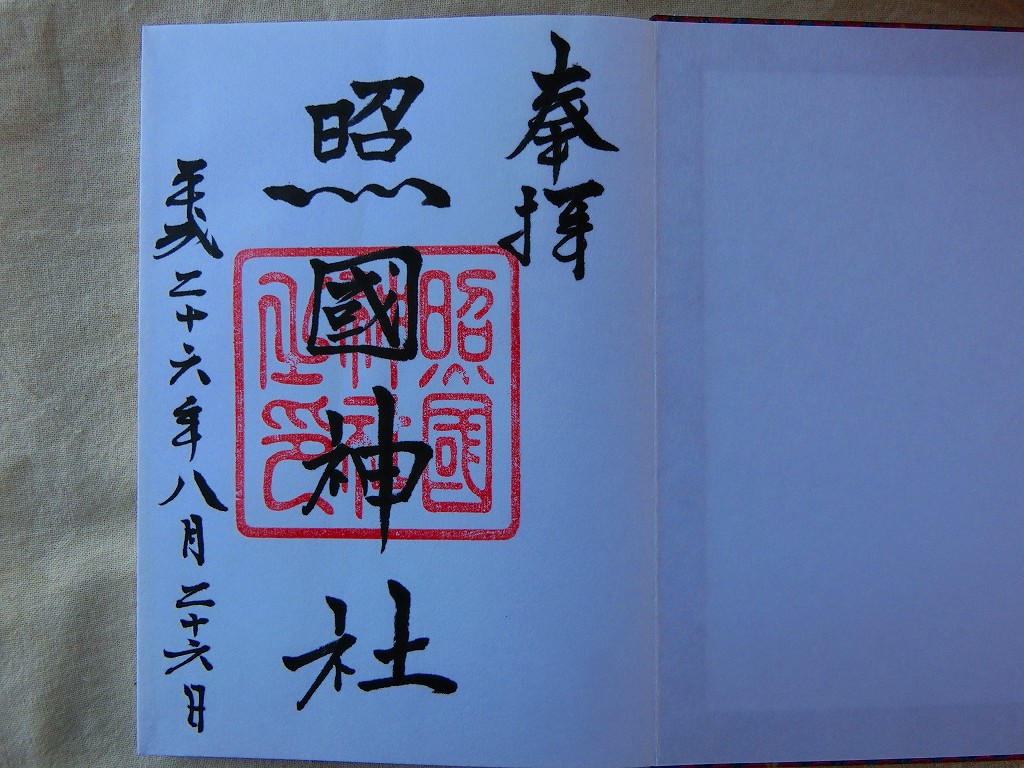 奉拝
照國神社
照國神社印
平成二十六年八月二十六日